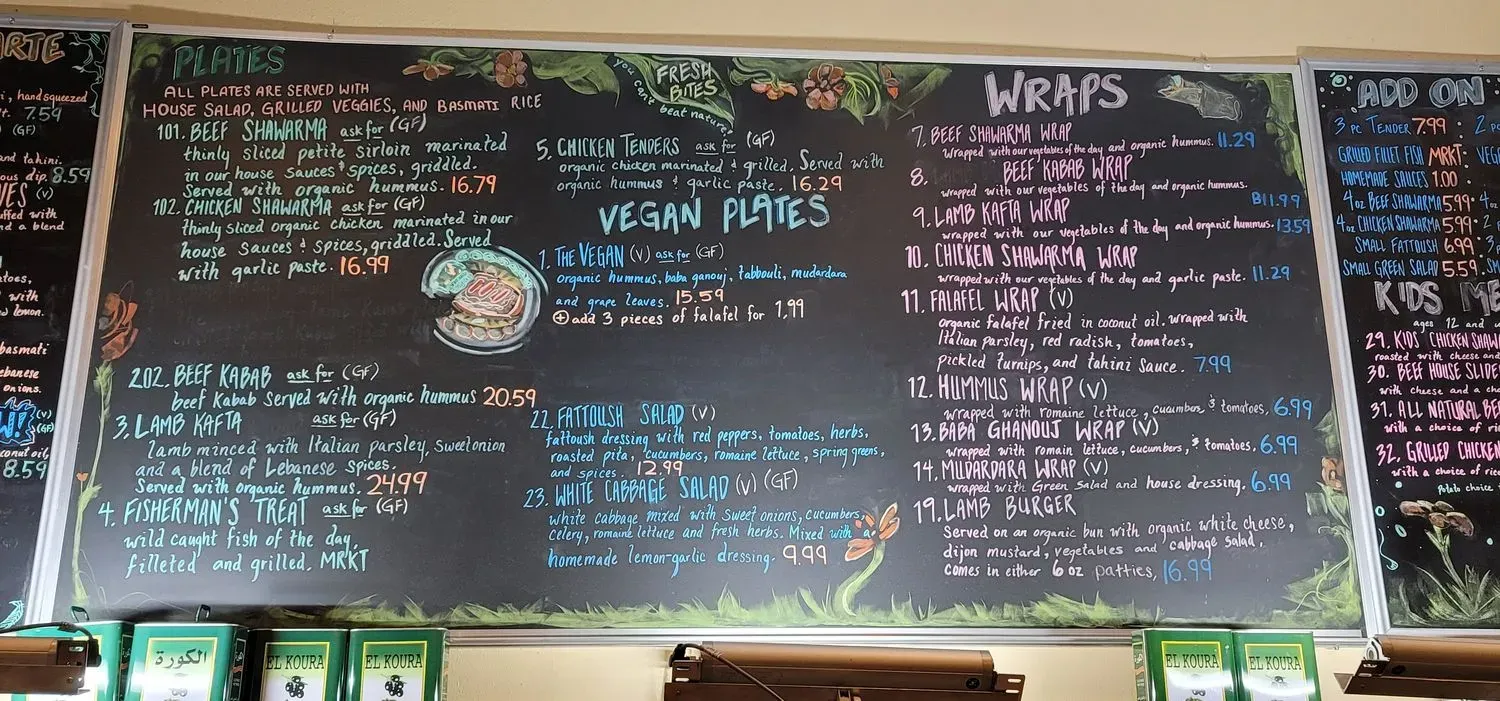 ARTE
, hand squeezed
7.59
(GF)
and tahini.
ous dip. 8.59
(V)
ffed with
nd a blend
toes,
with
lemon.
basmati
ebanese
onions.
(V)
(GF)
conut oil,
8.59
PLATES
ALL PLATES ARE SERVED WITH
HOUSE SALAD, GRILLED VEGGIES, AND BASMATI RICE
101. BEEF SHAWARMA ask for (GF)
thinly sliced petite sirloin marinated
in our house sauces & spices, griddled.
Served with organic hummus. 16.79
102. CHICKEN SHAWARMA ask for (GF)
thinly sliced organic chicken marinated in our
house sauces & spices, griddled. Served
with garlic paste. 16.99
202. BEEF KABAB ask for (GF)
beef Kabab Served with organic hummus 20.59
3. LAMB KAFTA ask for (GF)
lamb minced with Italian parsley, sweet onion
and a blend of Lebanese spices.
Served with organic hummus. 24.99
4. FISHERMAN'S TREAT ask for (GF)
wild caught fish of the day,
filleted and grilled. MRKT
you can't beat nature!
FRESH
BITES
5. CHICKEN TENDERS ask for (GF)
organic chicken marinated & grilled. Served with
organic hummus & garlic paste. 16.29
VEGAN PLATES
1. THE VEGAN (V) ask for (GF)
organic hummus, baba ganouj, tabbouli, mudardara
and grape leaves. 15.59
+ add 3 pieces of falafel for 1.99
22. FATTOUSH SALAD (V)
fattoush dressing with red peppers, tomatoes, herbs,
roasted pita, cucumbers, romaine lettuce, spring greens,
and spices. 12.99
23. WHITE CABBAGE SALAD (V) (GF)
white cabbage mixed with sweet onions, cucumbers,
celery, romaine lettuce and fresh herbs. Mixed with a
homemade lemon-garlic dressing. 9.99
WRAPS
7. BEEF SHAWARMA WRAP
Wrapped with our vegetables of the day and organic hummus. 11.29
8. BEEF KABAB WRAP
wrapped with our vegetables of the day and organic hummus.
B11.99
9. LAMB KAFTA WRAP
wrapped with our vegetables of the day and organic hummus. 13.59
10. CHICKEN SHAWARMA WRAP
wrapped with our vegetables of the day and garlic paste. 11.29
11. FALAFEL WRAP (V)
organic falafel fried in coconut oil. wrapped with
Italian parsley, red radish, tomatoes,
pickled turnips, and tahini sauce. 7.99
12. HUMMUS WRAP (V)
wrapped with romaine lettuce, cucumbers & tomatoes. 6.99
13. BABA GHANOUJ WRAP (V)
wrapped with romain lettuce, cucumbers, & tomatoes. 6.99
14. MUDARDARA WRAP (V)
wrapped with Green Salad and house dressing. 6.99
19. LAMB BURGER
Served on an organic bun with organic white cheese,
dijon mustard, vegetables and cabbage salad.
comes in either 6 oz patties, 16.99
ADD ON
3 PC TENDER 7.99 : 2 P
GRILLED FILLET FISH MRKT : VEG
HOMEMADE SAUCES 1.00
4 oz BEEF SHAWARMA 5.99 : 4 o
4 oz CHICKEN SHAWARMA 5.99 : 2
SMALL FATTOUSH 6.99 : 3
SMALL GREEN SALAD 5.59 . SM
KIDS ME
ages 12 and u
29. KIDS CHICKEN SHAW
roasted with cheese and
30. BEEF HOUSE SLIDE
with cheese and a cho
31. ALL NATURAL BE
with a choice of ri
32. GRILLED CHICKEN
with a choice of ric
potato choice
الكورة
EL KOURA
EL KOURA
EL KOURA
EL KOURA